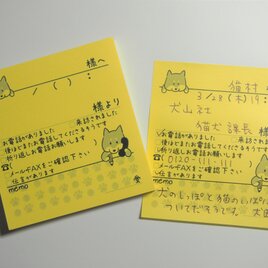 様へ
/ ( ) :
様より
お電話がありました
来訪されました
後ほどまたお電話してくださるそうです
折り返しお電話お願いします
☎( )
メール・FAXをご確認下さい
伝言があります
memo
猫村
3/28(木)19:
犬山社
猫犬 課長 様
お電話がありました
来訪されました
後ほどまたお電話してくださるそうです
折り返しお電話お願いします
☎(0120-111-111
メール・FAXをご確認下さい
伝言があります
memo
犬のしっぽと猫のしっぽに
ついてだそうです。